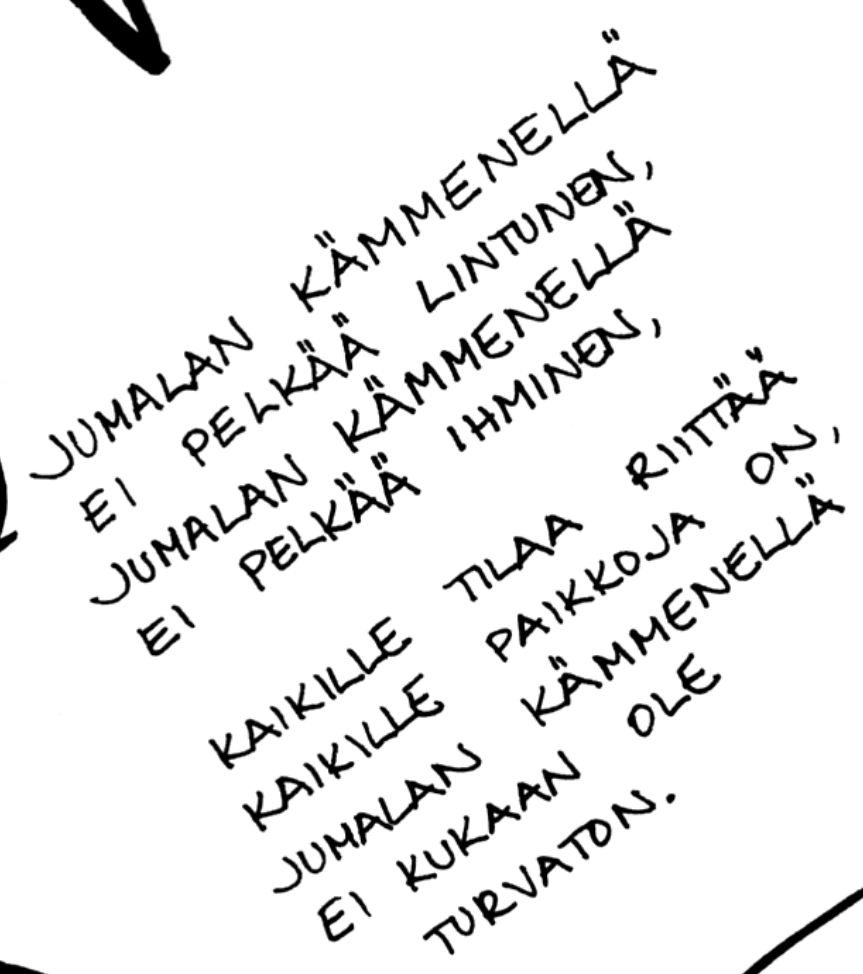 JUMALAN KÄMMENELLÄ
EI PELKÄÄ LINTUNEN,
JUMALAN KÄMMENELLÄ
EI PELKÄÄ IHMINEN,
KAIKILLE TILAA RIITTÄÄ
KAIKILLE PAIKKOJA ON,
JUMALAN KÄMMENELLÄ
EI KUKAAN OLE
TURVATON.